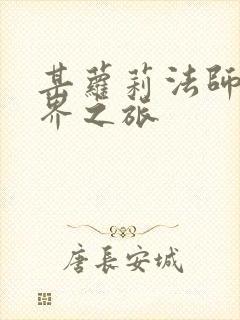 某蘿莉法師
界之旅
唐長安城